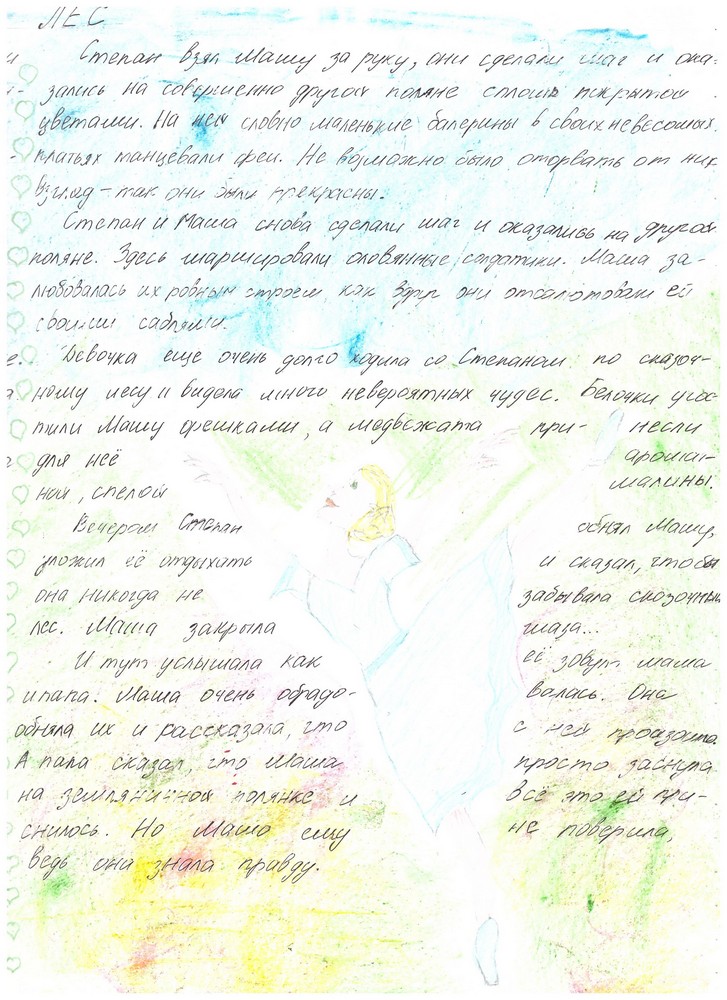 ЛЕС
Степан взял Машу за руку, они сделали шаг и ока-
зались на совершенно другой поляне сплошь покрытой
цветами. На ней словно маленькие балерины в своих невесомых
платьях танцевали феи. Не возможно было оторвать от них
взгляд - так они были прекрасны.
Степан и Маша снова сделали шаг и оказались на другой
поляне. Здесь маршировали оловянные солдатики. Маша за-
любовалась их ровным строем, как вдруг они отсалютовали ей
своими саблями.
Девочка еще очень долго ходила со Степаном по сказоч-
ному лесу и видела много невероятных чудес. Белочки угос-
тили Машу орешками, а медвежата при- несли
для неё аромат-
ной, спелой малины.
Вечером Степан обнял Машу,
уложил её отдыхать и сказал, чтобы
она никогда не забывала сказочный
лес. Маша закрыла глаза...
И тут услышала как её зовут мама
и папа. Маша очень обрадо- валась. Она
обняла их и рассказала, что с ней произошло.
А папа сказал, что Маша просто заснула
на земляничной полянке и всё это ей при-
снилось. Но Маша ему не поверила,
ведь она знала правду.